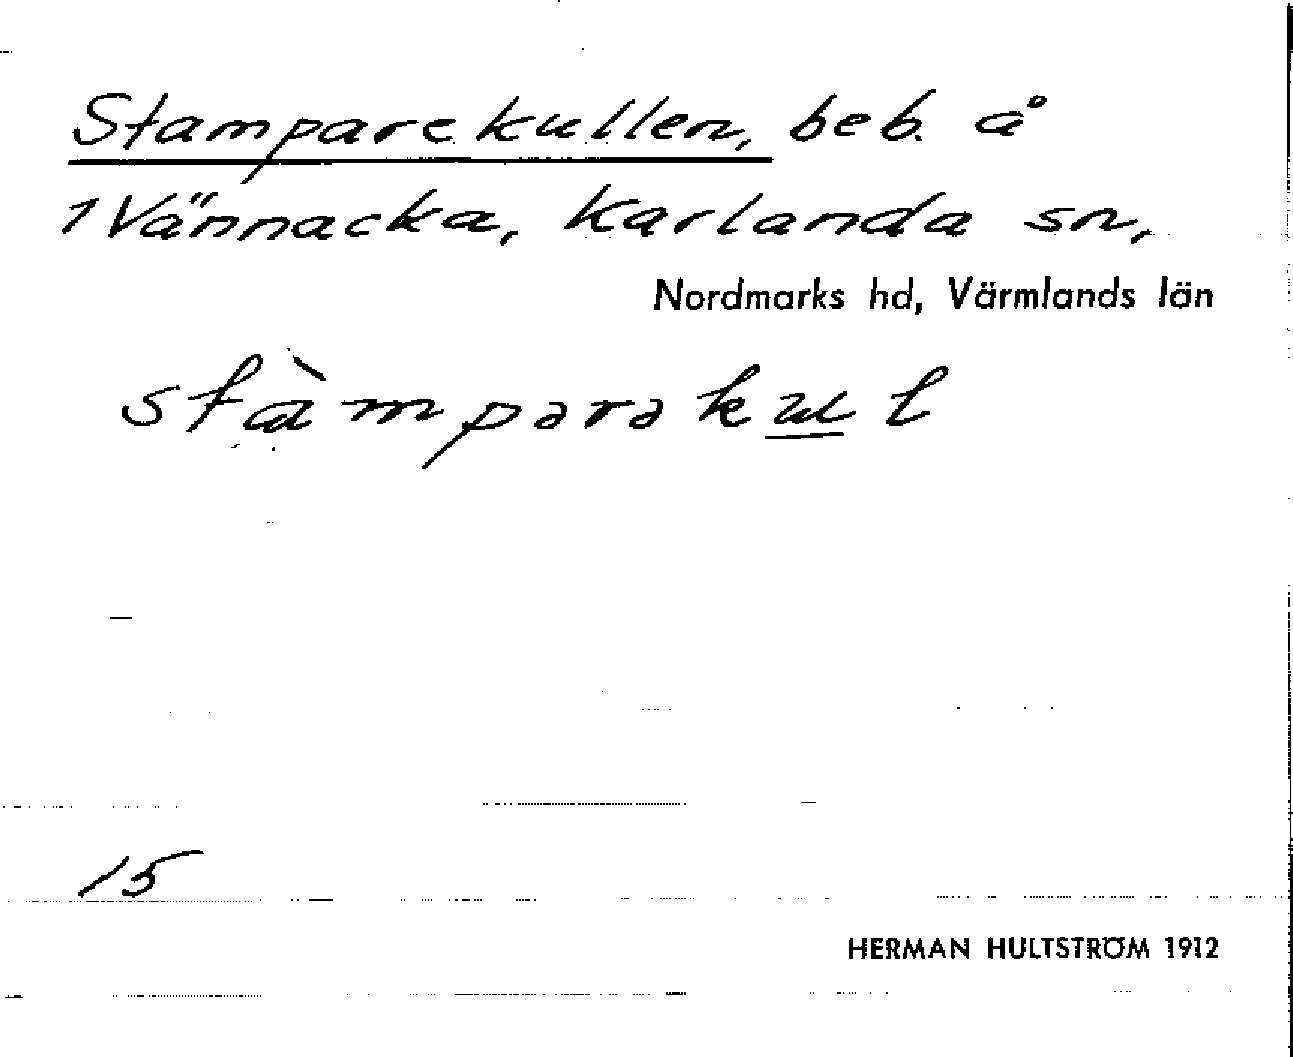 Stamparekullen, beb. å
1 Vännacka, Karlanda sn,
Nordmarks hd, Värmlands län
stàmpərəkul
15
HERMAN HULTSTRÖM 1912